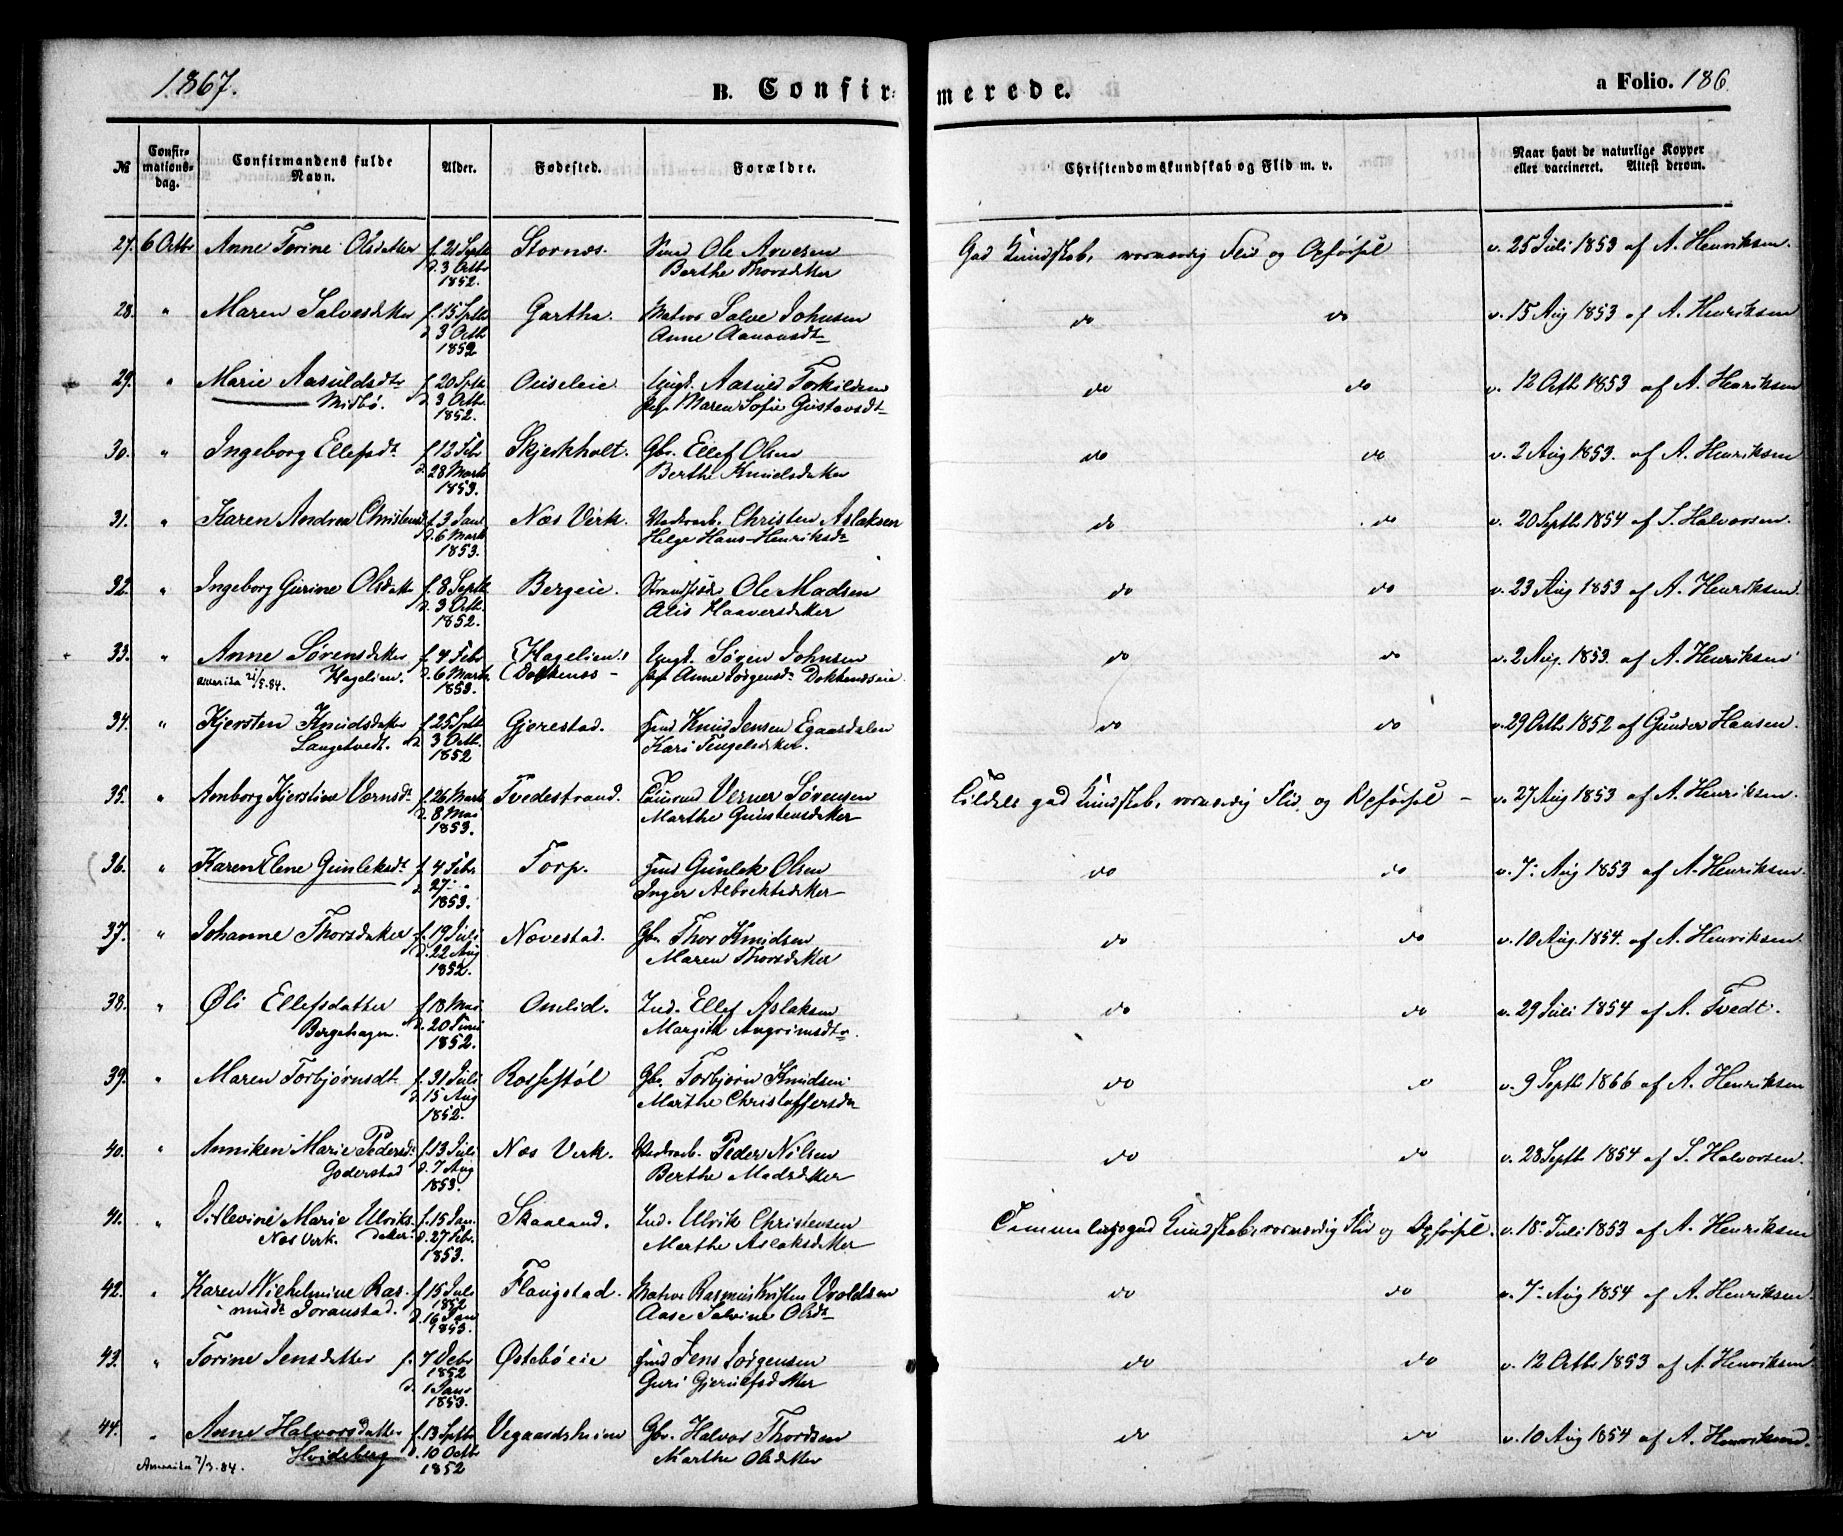 1867.
B. Confirmerede.
a Folio. 186
№ Confirmationsdag. Confirmandens fulde Navn. Alder. Fødested. Forældre. Christendomskundskab og Flid m. v. Naar havt de naturlige Kopper eller vaccineret. Attest derom.
27. 6 Octbr Anne Torine Olsdatter f. 21 Septb Stornæs. Ole Arvesen God Kundskab, Flid og Opførsel v. 25 Juli 1853 af A. Henriksen.
d. 3 Octbr Berthe Thorsdatter
1852.
28. " Maren Salvesdatter f. 15 Septb Gartha. Salve Johnsen do do v. 15 Aug 1853 af A. Henriksen
d. 3 Octb Anne Aanonsdt
1852
29. " Marie Aasuldsdtr f. 20 Septb Torkildsen do do v. 12 Octb 1853 af A. Henriksen
Midbø. d. 3 Octb. Maren Sofie Gustavsdt
1852.
30. " Ingeborg Ellefsdt f. 12 Febr Skjerkholt. Gbr. Ellef Olsen do do v. 2 Aug 1853. af A. Henriksen
d. 28 Marts Berthe Knudsdatter
1853.
31. " Karen Andrea Christensd f. 3 Janr Næs Verk. Christen Aslaksen do do v. 20 Septb 1854 af S. Halvorsen.
d. 6 Marts Helge Hans-Henriksdt
1853.
32. " Ingeborg Gurine Olsdatt f. 8 Septb Bergeie. Ole Madsen do do v. 23 Aug 1853 af A. Henriksen.
d. 3 Octb. Haaversdatter
1852.
33. " Anne Sørensdatter f. 4 Febr Hagelien Søren Johnsen do do v. 2 Aug. 1853. af A. Henriksen
Amerika 21/5.84. Hagelien. d. 6 Marts Anne Jørgensdt Dokkenæseie
1853.
34. " Kjersten Knudsdatter f. 25 Septb Gjerestad. Knud Jensen Egaasdalen do do v. 29 Octb 1852 af Gunder Hansen.
Langetvedt. d. 3 Octb. Kari Tengelsdatter.
1852
35. " Anborg Kjerstine Værnsdt f. 26 Marts Tvedestrand. Verner Sørensen god Kundskab, Flid, og Opførsel – v. 27 Aug 1853 af A. Henriksen.
d. 8 Mai Marthe Gunstensdatter
1853.
36. " Karen Elene Gunleksdt f. 4 Febr. Torp. Gunlek Olsen do do v. 7. Aug 1853 af A. Henriksen.
d. 27. " Inger Albrektsdatter
1853.
37. " Johanne Thorsdatter f. 19 Juli Nævestad. Gbr. Thor Knudsen do do v. 10 Aug. 1854. af A. Henriksen.
d. 22 Aug Maren Thorsdatter
1852.
38. " Øli Ellefsdatter f. 18 Mai Omlid. Ind. Ellef Aslaksen do do v. 29 Juli 1854 af A. Tvedt.
Bergehagen. d. 20 Juni Margith
1852.
39. " Maren Torbjørnsdt f. 31 Juli Rossestøl Gbr. Torbjørn Knudsen do do v. 9 Septb 1866 af A. Henriksen
d. 15 Aug Marthe Christoffersda
1852.
40. " Anniken Marie Pedersdt f. 13 Juli Næs Verk. Peder Nilsen do do v. 28 Septb 1854 af S. Halvorsen.
Goderstad d. 7 Aug Berthe Madsdatter
1853.
41. " Ditlevine Marie Ulriks- f. 15 Jan. Skaaland. Ind. Ulrik Christensen god Kundskab, Flid og Opførsel. v. 18 Juli 1853 af A. Henriksen
Næs Verk. datter d. 27 Febr. Marthe Aslaksdatter
1853.
42. " Karen Vilhelmine Ras- f. 15 Juli Flaugstad. Rasmus do do v. 7. Aug 1854 af A. Henriksen.
musdt 1852 Aase Olsdt
d. 16 Jan
1853.
43. " Torine Jensdatter f. 7 Debr Østebøeie Jens Jørgensen do do v. 12 Octb 1853 af A. Henriksen
1852 Guri Gjerulfsdatter
d. 1 Janr
1853.
44. " Anne Halvorsdatter f. 13 Septb Vegaardsheien Gbr. Halvor Thordsen do do v. 10 Aug 1854 af A. Henriksen.
Amerika 7/3.84. Hvideberg d. 10 Octbr Marthe Olsdatter
1852